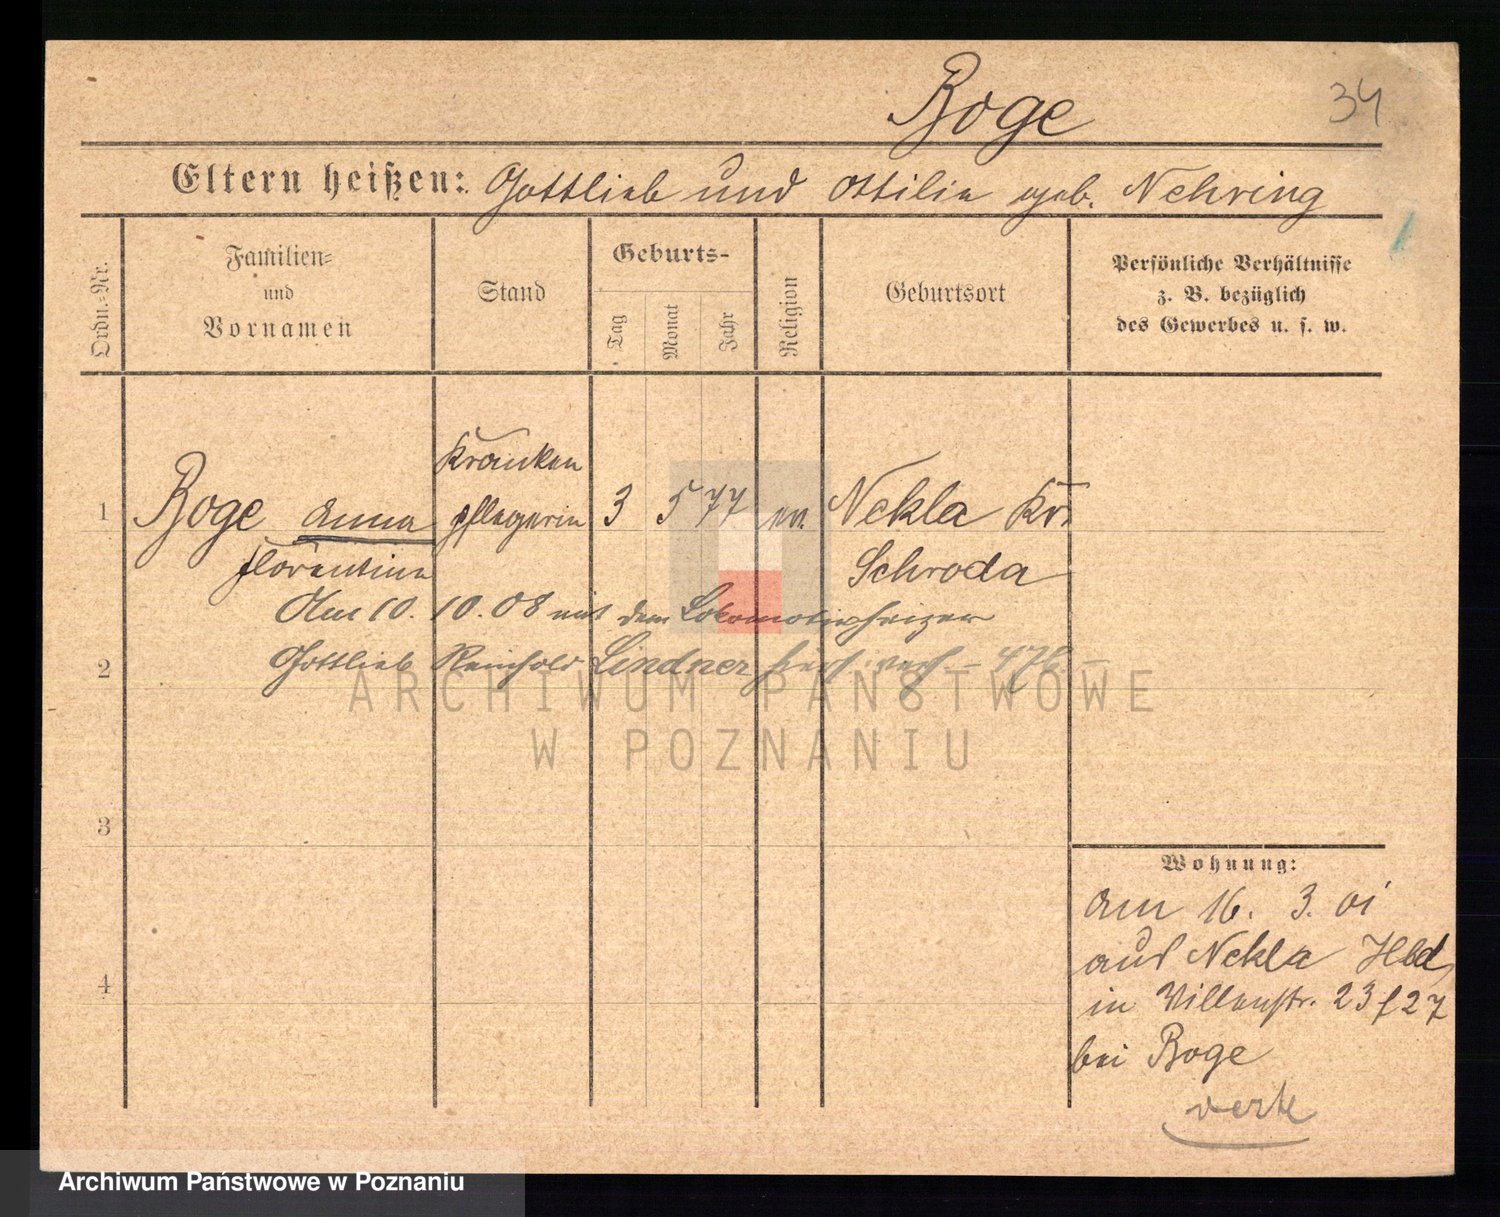 Boge
34
Eltern heißen: Gottlieb und Ottilie geb. Nehring
Ordn.-Nr.
Familien-
und
Vornamen
Stand
Geburts-
Tag
Monat
Jahr
Religion
Geburtsort
Persönliche Verhältnisse
z. B. bezüglich
des Gewerbes u. s. w.
1 Boge Anna
Florentine
Kranken
pflegerin
3 5 77 ev. Nekla Kr.
Schroda
Am 10. 10. 08 mit dem Lokomotivheizer
2 Gottlieb Reinhold Lindner hier verh. - 476 -
3
4
Wohnung:
am 16. 3. 01
aus Nekla Hld
in Villenstr. 23 f 27
bei Boge
verte
ARCHIWUM PAŃSTWOWE
W POZNANIU
Archiwum Państwowe w Poznaniu